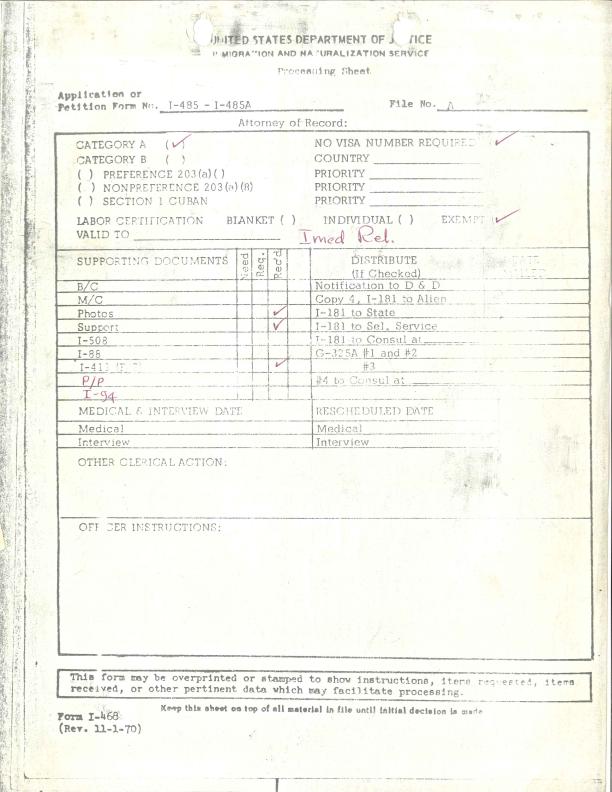 UNITED STATES DEPARTMENT OF JUSTICE
IMMIGRATION AND NATURALIZATION SERVICE
Processing Sheet
Application or
Petition Form No. I-485 - I-485A File No. A
Attorney of Record:
CATEGORY A (✓) NO VISA NUMBER REQUIRED ✓
CATEGORY B ( ) COUNTRY
( ) PREFERENCE 203(a)( ) PRIORITY
( ) NONPREFERENCE 203(a)(8) PRIORITY
( ) SECTION 1 CUBAN PRIORITY
LABOR CERTIFICATION BLANKET ( ) INDIVIDUAL ( ) EXEMPT ✓
VALID TO Imed Rel.
SUPPORTING DOCUMENTS Need Req. Rec'd DISTRIBUTE DATE
(If Checked)
B/C Notification to D & D
M/C Copy 4, I-181 to Alien
Photos ✓ I-181 to State
Support ✓ I-181 to Sel. Service
I-508 I-181 to Consul at
I-88 G-325A #1 and #2
✓ #3
P/P #4 to Consul at
I-94
MEDICAL & INTERVIEW DATE RESCHEDULED DATE
Medical Medical
Interview Interview
OTHER CLERICAL ACTION:
OFFICER INSTRUCTIONS:
This form may be overprinted or stamped to show instructions, items requested, items
received, or other pertinent data which may facilitate processing.
Keep this sheet on top of all material in file until initial decision is made
Form I-468
(Rev. 11-1-70)